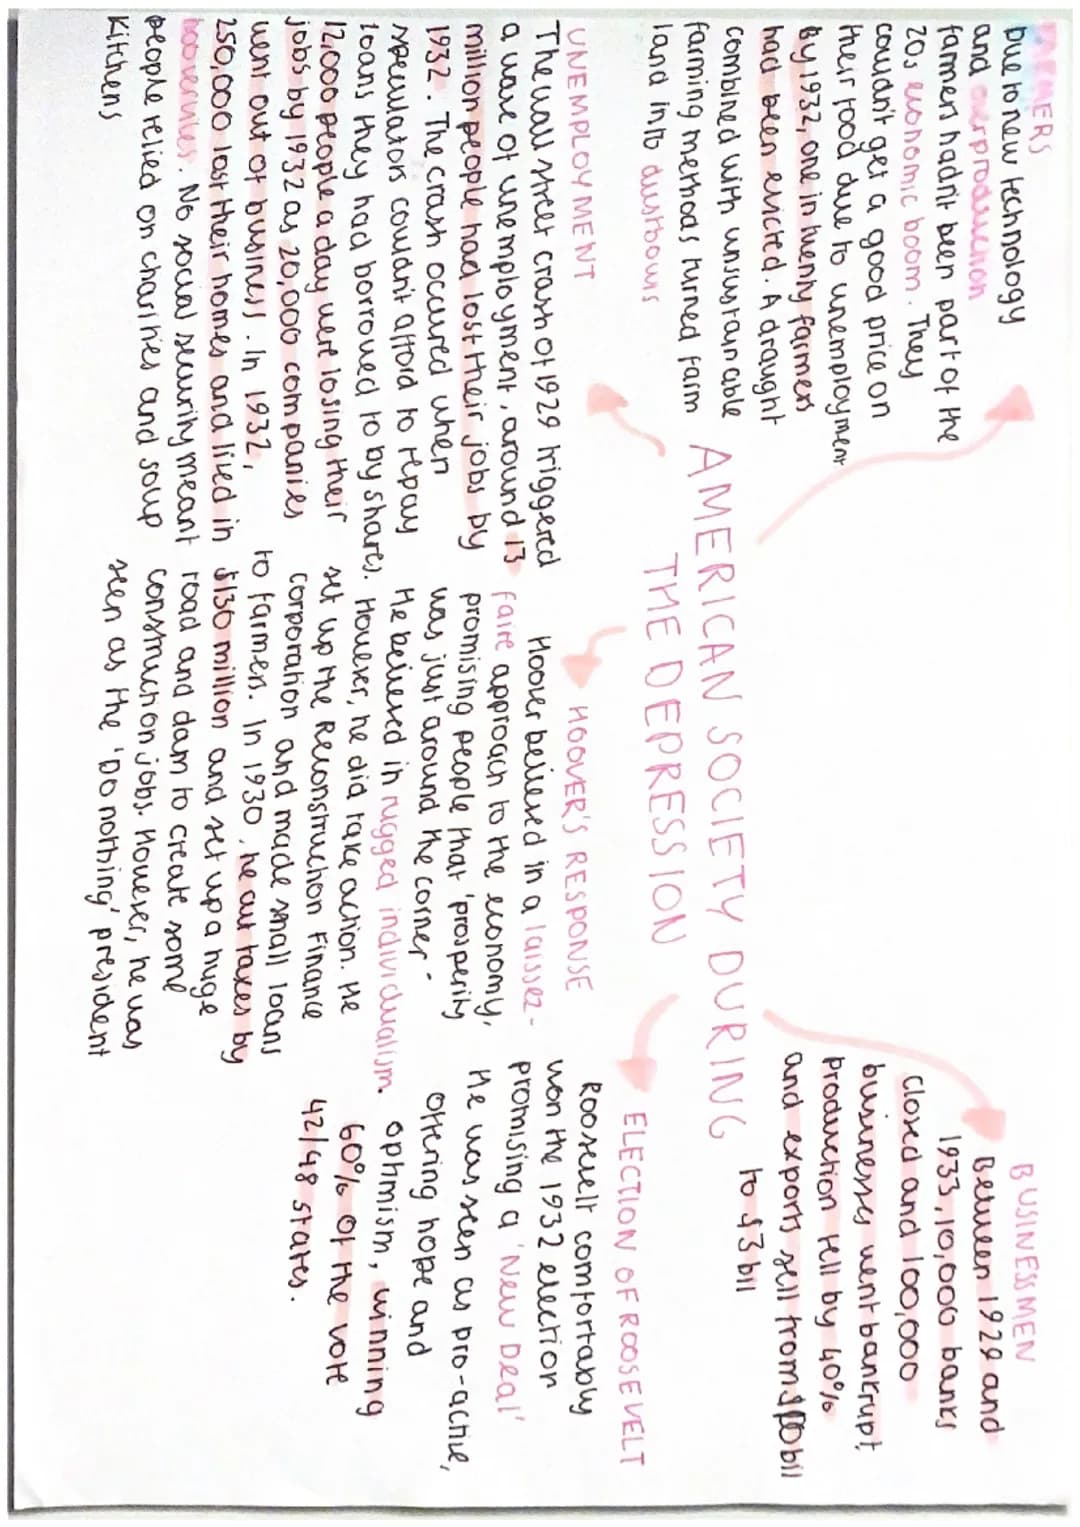 FARMERS
Due to new technology
and overproduction
farmers hadn't been part of the
20s economic boom. They
coudn't get a good price on
their food due to unemployment
By 1932, one in twenty farmers
had been evicted. A draught
combined with unsustainable
farming methods turned farm
land into dustbowls
AMERICAN SOCIETY DURING
THE DEPRESSION
BUSINESSMEN
Between 1929 and
1933, 10,000 banks
closed and 100,000
businesses went bankrupt
production fell by 40%
and exports fell from bil
to $3 bil
UNEMPLOYMENT
The wall street crash of 1929 triggered
a wave of unemployment, around 13
million people had lost their jobs by
1932. The crash occured when
speculators couldn't afford to repay
loans they had borrowed to by shares.
12,000 people a day were losing their
jobs by 1932 as 20,000 companies
went out of business. In 1932,
250,000 lost their homes and lived in
hoovervilles. No social security meant
people relied on charities and soup
Kitchens
HOOVER'S RESPONSE
Hoover believed in a laissez-
faire approach to the economy,
promising people that 'prosperity
was just around the corner'
He believed in rugged individualism.
However, he did take action. He
set up the Reconstruction Finance
corporation and made small loans
to farmers. In 1930, he cut taxes by
$130 million and set up a huge
road and dam to create some
construction jobs. However, he was
seen as the 'Do nothing' president
ELECTION OF ROOSEVELT
Roosevelt comfortably
won the 1932 election
promising a 'New Deal'
He was seen as pro-active,
offering hope and
optimism, winning
60% of the vote
42/48 states.